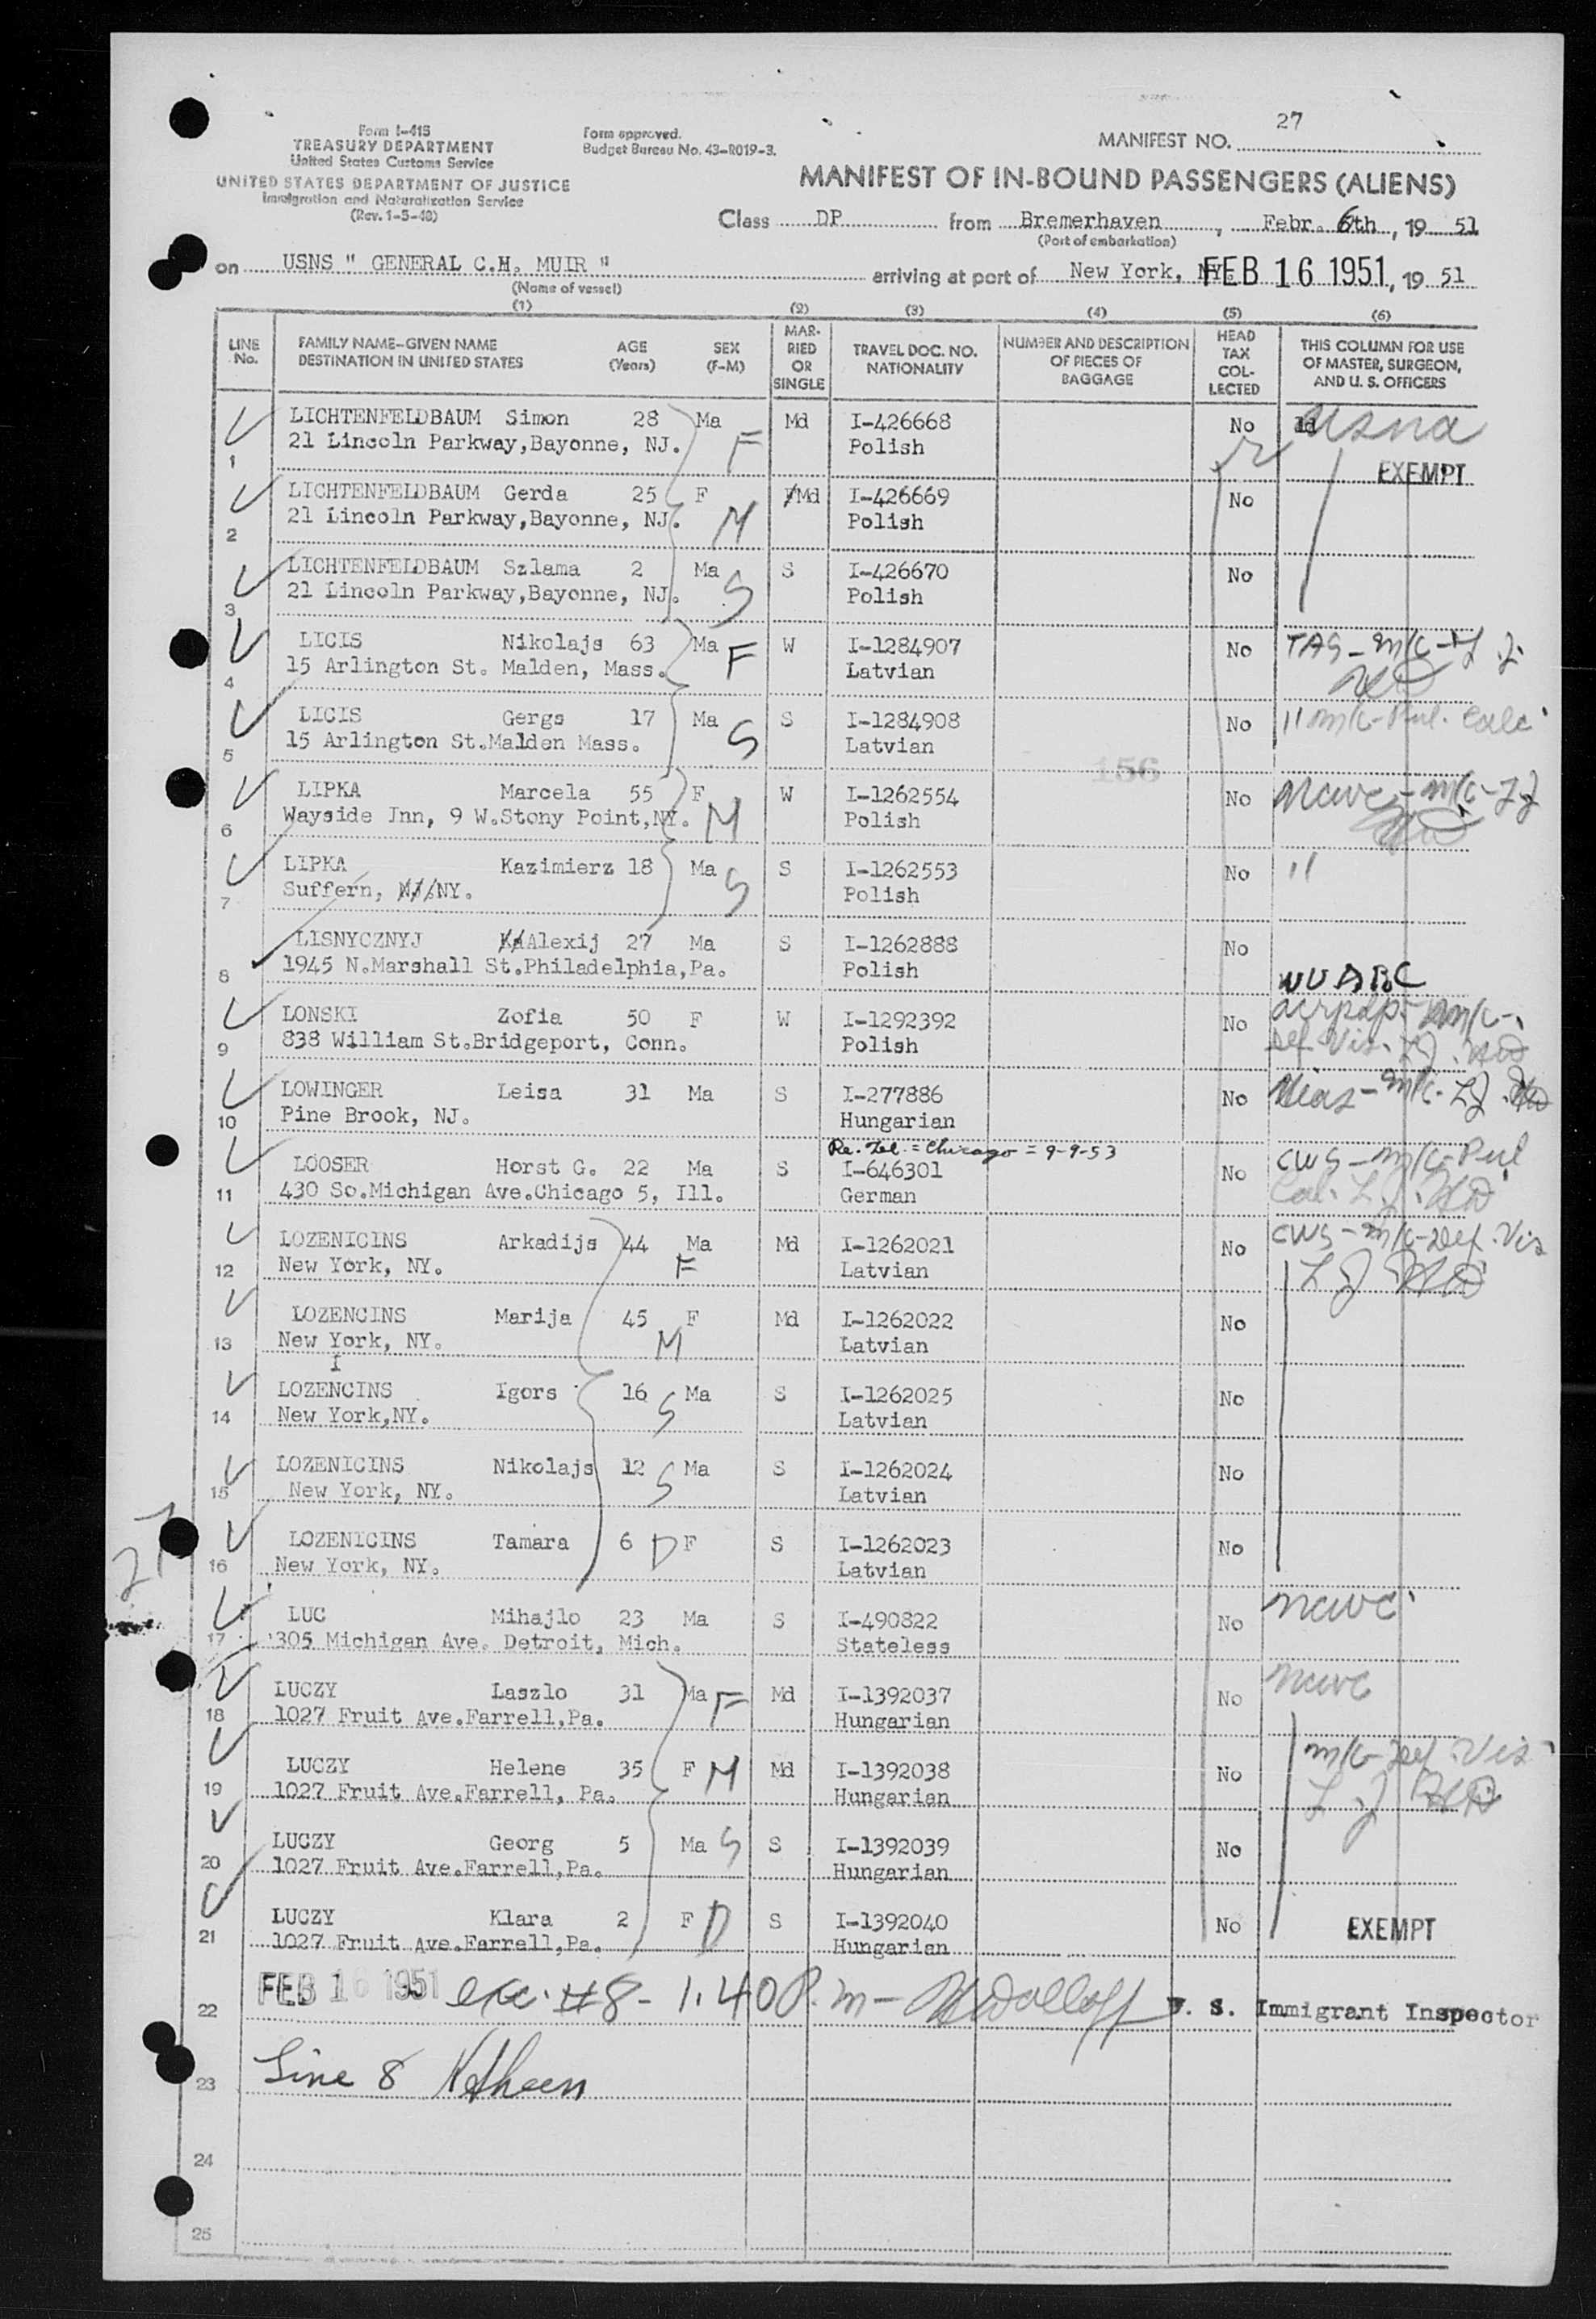 27
Form I-415
TREASURY DEPARTMENT
United States Customs Service
UNITED STATES DEPARTMENT OF JUSTICE
Immigration and Naturalization Service
(Rev. 1-5-48)
Form approved.
Budget Bureau No. 43-R019-3.
MANIFEST NO.
MANIFEST OF IN-BOUND PASSENGERS (ALIENS)
Class DP from Bremerhaven, Febr. 6th, 19 51
(Port of embarkation)
on USNS " GENERAL C.H. MUIR " arriving at port of New York, NY. FEB 16 1951, 19 51
(Name of vessel)
(1) (2) (3) (4) (5) (6)
LINE No. FAMILY NAME-GIVEN NAME DESTINATION IN UNITED STATES AGE (Years) SEX (F-M) MARRIED OR SINGLE TRAVEL DOC. NO. NATIONALITY NUMBER AND DESCRIPTION OF PIECES OF BAGGAGE HEAD TAX COLLECTED THIS COLUMN FOR USE OF MASTER, SURGEON, AND U. S. OFFICERS
LICHTENFELDBAUM Simon 28 Ma Md I-426668 No usna
1 21 Lincoln Parkway,Bayonne, NJ. F Polish
EXEMPT
LICHTENFELDBAUM Gerda 25 F Md I-426669 No
2 21 Lincoln Parkway,Bayonne, NJ. M Polish
LICHTENFELDBAUM Szlama 2 Ma S I-426670 No
3 21 Lincoln Parkway,Bayonne, NJ. S Polish
LICIS Nikolajs 63 Ma W I-1284907 No
4 15 Arlington St. Malden, Mass. F Latvian
LICIS Gergs 17 Ma S I-1284908 No
5 15 Arlington St.Malden Mass. S Latvian
156
LIPKA Marcela 55 F W I-1262554 No ncwc
6 Wayside Jnn, 9 W.Stony Point,NY. M Polish
LIPKA Kazimierz 18 Ma S I-1262553 No "
7 Suffern, NY. S Polish
LISNYCZNYJ Alexij 27 Ma S I-1262888 No
8 1945 N.Marshall St.Philadelphia,Pa. Polish
LONSKI Zofia 50 F W I-1292392 No
9 838 William St.Bridgeport, Conn. Polish
LOWINGER Leisa 31 Ma S I-277886 No Hias
10 Pine Brook, NJ. Hungarian
Re. Tel. = Chicago = 9-9-53
LOOSER Horst G. 22 Ma S I-646301 No CWS
11 430 So.Michigan Ave.Chicago 5, Ill. German
LOZENICINS Arkadijs 44 Ma Md I-1262021 No CWS - m/c - Def. Vis
12 New York, NY. F Latvian
LOZENCINS Marija 45 F Md I-1262022 No
13 New York, NY. M Latvian
I
LOZENCINS Igors 16 Ma S I-1262025 No
14 New York,NY. S Latvian
LOZENICINS Nikolajs 12 Ma S I-1262024 No
15 New York, NY. S Latvian
LOZENICINS Tamara 6 D F S I-1262023 No
16 New York, NY. Latvian
27
LUC Mihajlo 23 Ma S I-490822 No ncwc
17 305 Michigan Ave. Detroit, Mich. Stateless
LUCZY Laszlo 31 Ma F Md I-1392037 No ncwc
18 1027 Fruit Ave.Farrell,Pa. Hungarian
LUCZY Helene 35 F M Md I-1392038 No m/c - Def. Vis
19 1027 Fruit Ave.Farrell, Pa. Hungarian
LUCZY Georg 5 Ma S S I-1392039 No
20 1027 Fruit Ave.Farrell,Pa. Hungarian
LUCZY Klara 2 F D S I-1392040 No EXEMPT
21 1027 Fruit Ave.Farrell,Pa. Hungarian
22 FEB 16 1951 exc. #8 - 1.40 P.m - U. S. Immigrant Inspector
23 Line 8
24
25